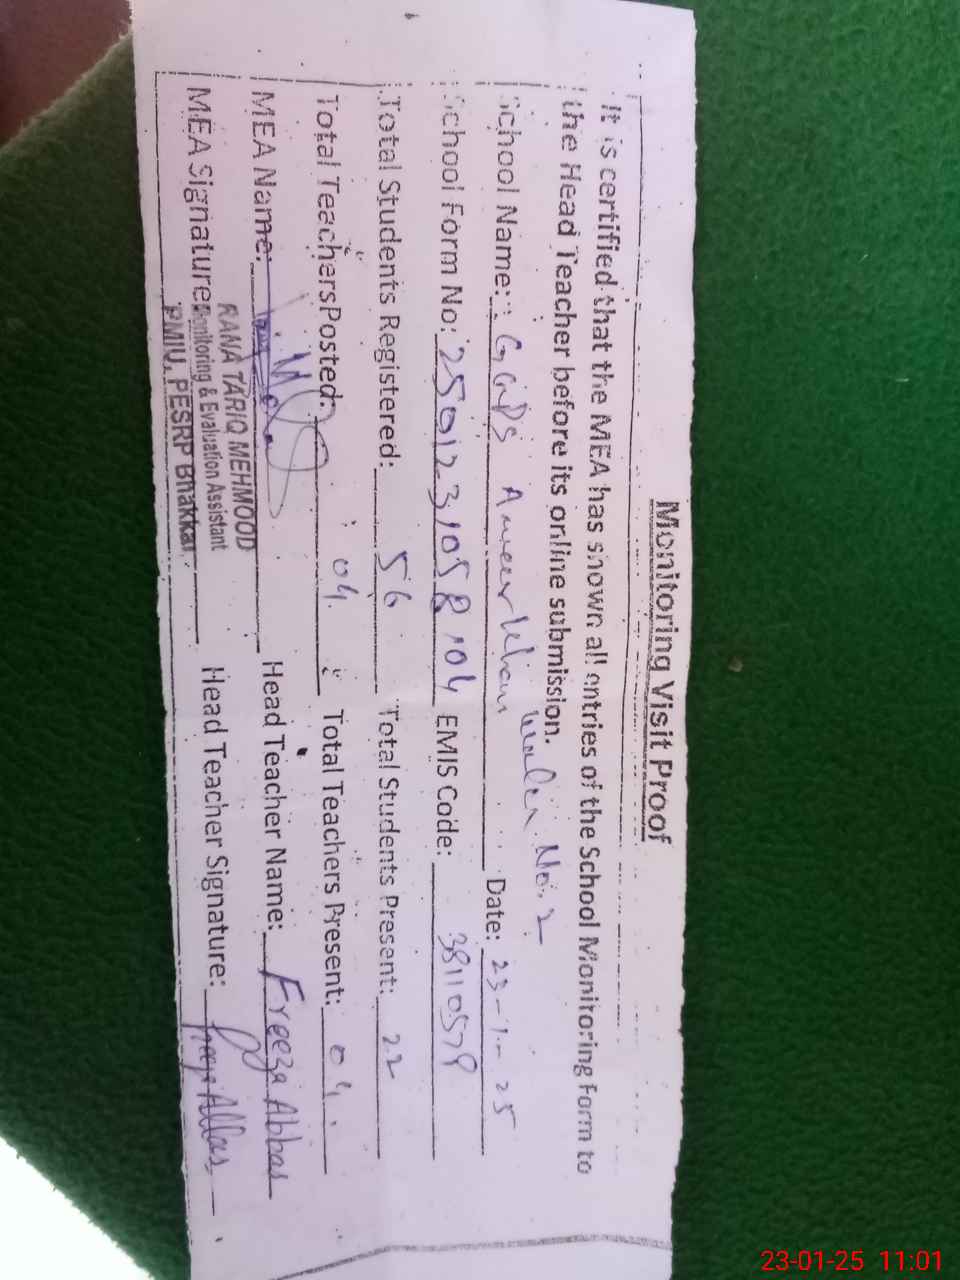 Monitoring Visit Proof
It is certified that the MEA has shown all entries of the School Monitoring Form to
the Head Teacher before its online submission.
School Name: GGPS Ameer Khan Wala No. 2 Date: 23-1-25
School Form No: 250123,1058,04 EMIS Code: 38110579
Total Students Registered: 56 Total Students Present: 22
Total Teachers Posted: 04 Total Teachers Present: 04
MEA Name: Head Teacher Name: Freeza Abbas
MEA Signature: Head Teacher Signature: Freeza Abbas
RANA TARIQ MEHMOOD
Monitoring & Evaluation Assistant
PMIU, PESRP Bhakkar
23-01-25 11:01